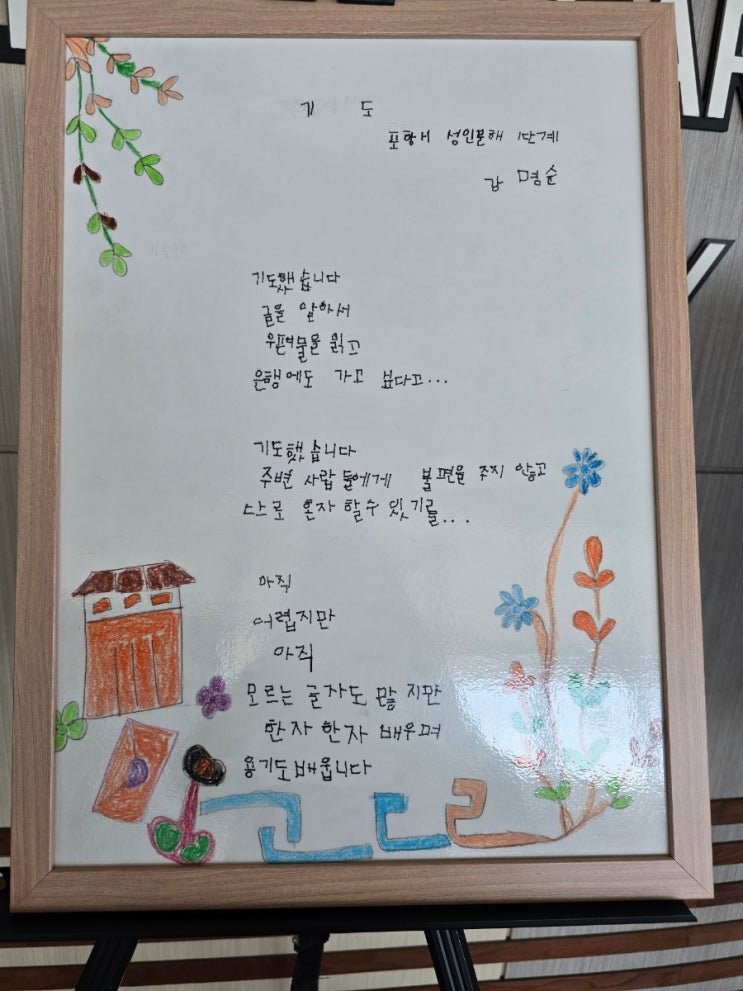 기 도
포항시 성인문해 1단계
강 명순
기도했습니다
글을 알아서
우편물을 읽고
은행에도 가고 싶다고...
기도했습니다
주변 사람들에게 불편을 주지 않고
스스로 혼자 할수 있기를...
아직
어렵지만
아직
모르는 글자도 많지만
한자 한자 배우며
용기도배웁니다
ㄱ ㄴ ㄷ ㄹ